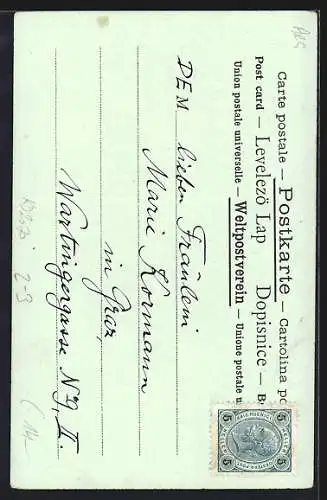 Carte postale – Postkarte – Cartolina po
Post card – Levelező Lap Dopisnice – B
Union postale universelle – Weltpostverein – Unione postale u
5 5
5 5
DEM lieben Fräulein
Marie Kormann
in Graz,
Wartingergasse No 9, II.
2-3